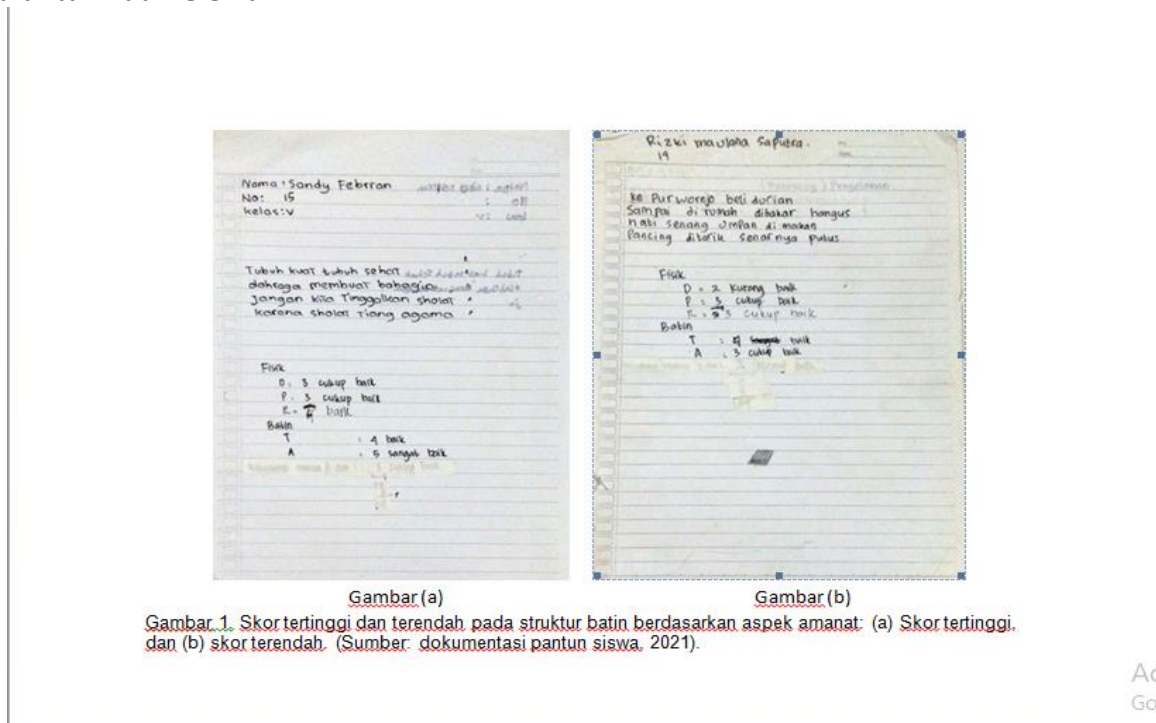 Nama : Sandy Febrian
No : 15
kelas : V
Tubuh kuat tubuh sehat
olahraga membuat bahagia
Jangan kita Tinggalkan sholat
karena sholat Tiang agama
Fisik
D : 3 cukup baik
P : 3 cukup baik
R : 4 baik
Batin
T : 4 baik
A : 5 sangat baik
Rizki maulana Saputra.
19
ke Purworejo beli durian
Sampai di rumah dibakar hangus
hati senang Umpan di makan
Pancing ditarik senarnya putus
Fisik
D = 2 kurang baik
P : 3 cukup baik
R : 3 cukup baik
Batin
T : 4 baik
A : 3 cukup baik
Gambar (a)
Gambar (b)
Gambar 1. Skor tertinggi dan terendah pada struktur batin berdasarkan aspek amanat: (a) Skor tertinggi,
dan (b) skor terendah. (Sumber: dokumentasi pantun siswa, 2021).